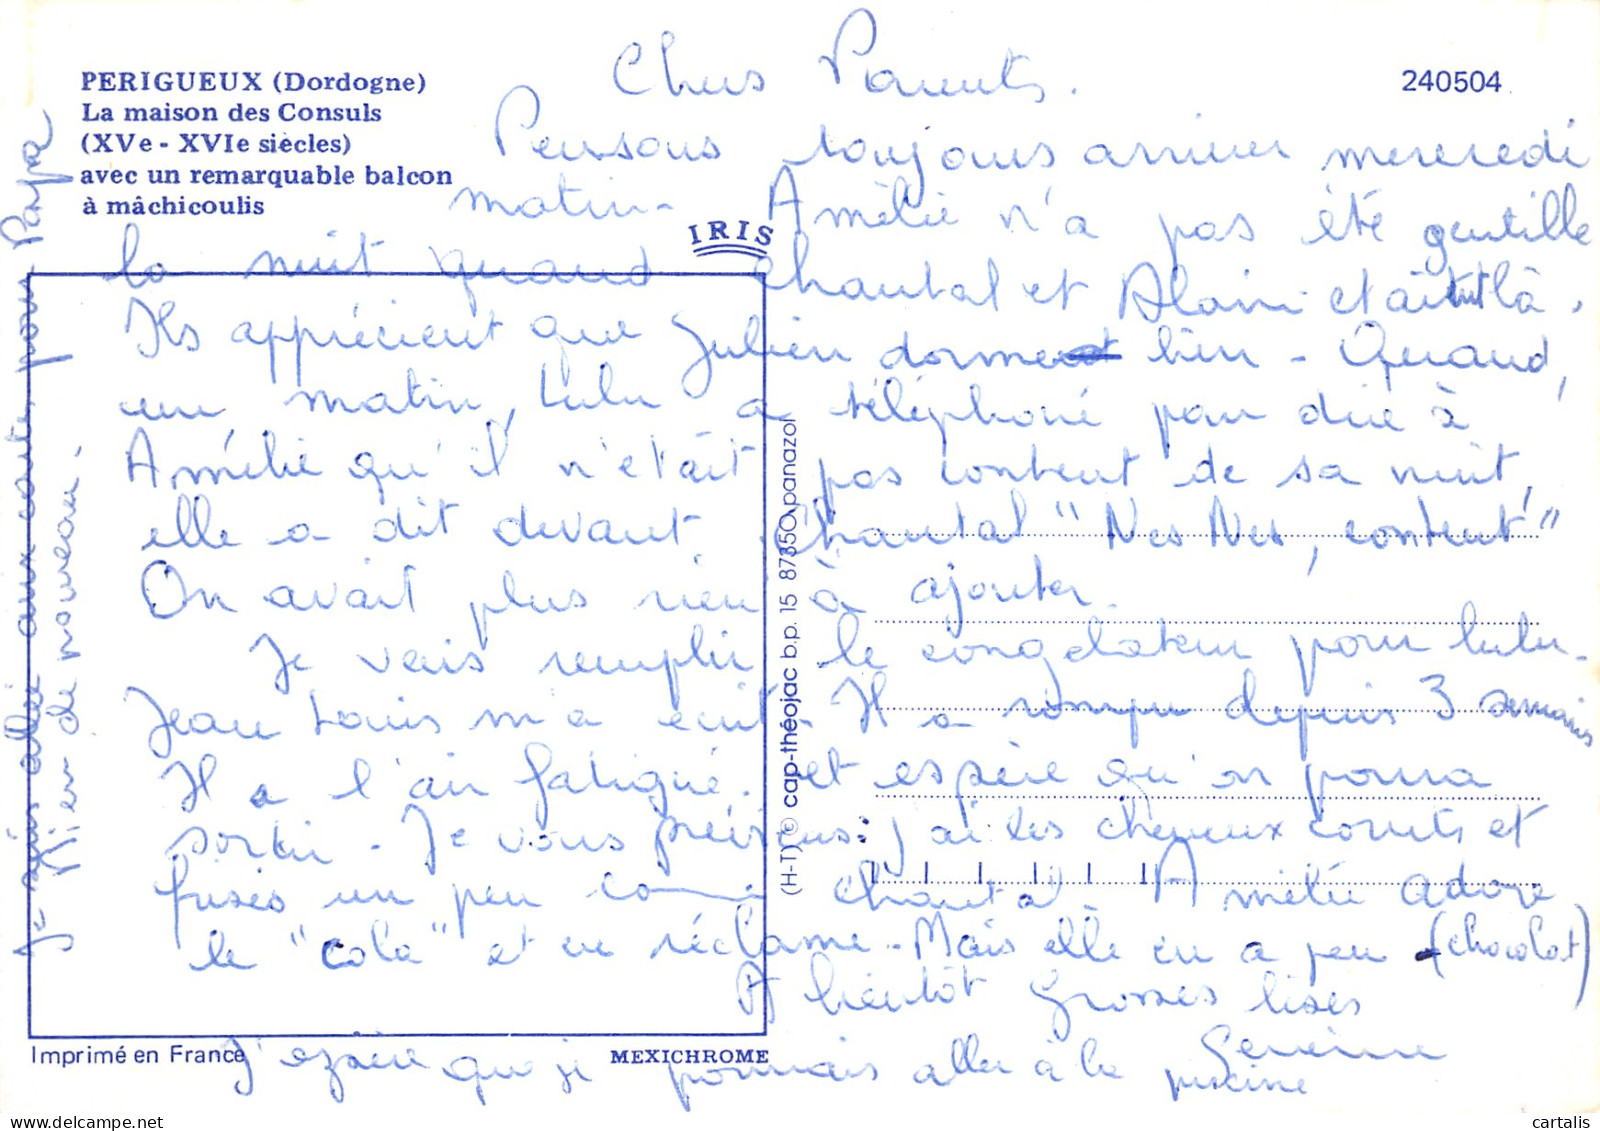 PERIGUEUX (Dordogne)
La maison des Consuls
(XVe - XVIe siècles)
avec un remarquable balcon
à mâchicoulis
IRIS
240504
Chers Parents.
Pensons toujours arriver mercredi
matin - Amélie n'a pas été gentille
la nuit quand Chantal et Alain etaient là.
Ils apprécient que Julien dorme bien - Quand,
un matin, Lulu a téléphoné pour dire à
Amélie qu'il n'etait pas content de sa nuit,
elle a dit devant Chantal "Nes Nes, content"
On avait plus rien à ajouter.
Je vais remplir le congelateur pour Lulu.
Jean Louis m'a ecrit. Il a rompu depuis 3 semaines
Il a l'air fatigué. et espère qu'on pourra
sortir - Je vous préviens: j'ai les cheveux courts et
frisés un peu comme Chantal. Amélie adore
le "cola" et en réclame - Mais elle en a peu (chocolat)
A bientôt Grosses bises
J'espère que je pourrais aller à la piscine
Je suis allée aux courses pour Papa
Rien de nouveau.
Imprimé en France
MEXICHROME
(H-T) © cap-théojac b.p. 15 87350 panazol
cartalis